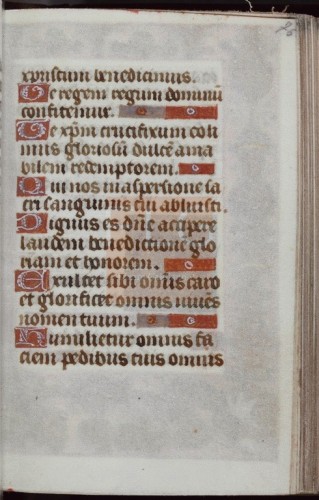 xpristum benedicimus.
Te regem regum dominū
confitemur.
Te xp̄m crucifixum coli
mus gloriosū dulcē ama
bilem redemptorem.
Qui nos in aspersione sa
cri sanguinis tui abluisti.
Dignus es dñe accipere
laudem benedictione glo
riam et honorem.
Exultet tibi omīs caro
et glorificet omnis uiuēs
nomen tuum.
Humilietur omnis fa
ciem pedibus tuis omnis